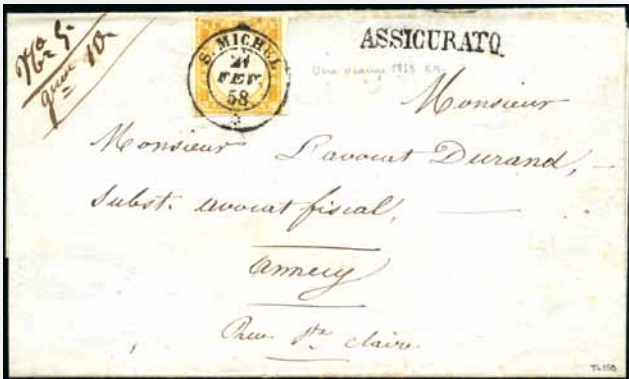 N.º 5.
10.
S. MICHEL
21
FEV
58
ASSICURATO.
Monsieur
Monsieur L'avocat Durand,
Subst. avocat fiscal,
annecy
Rue Ste claire